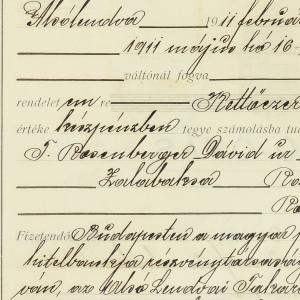 Alsólendva 1911 február
1911 május hó 16-
váltónál fogva
rendelet em re Kettőezer
értéke készpénzben tegye számolásba tud
T. Rosenberger Dávid ur
Zalabaksa Ro
Ro
Fizetendő Budapesten a magyar
hitelbankja részvénytársasá
van, az Alsó Lendvai Takar